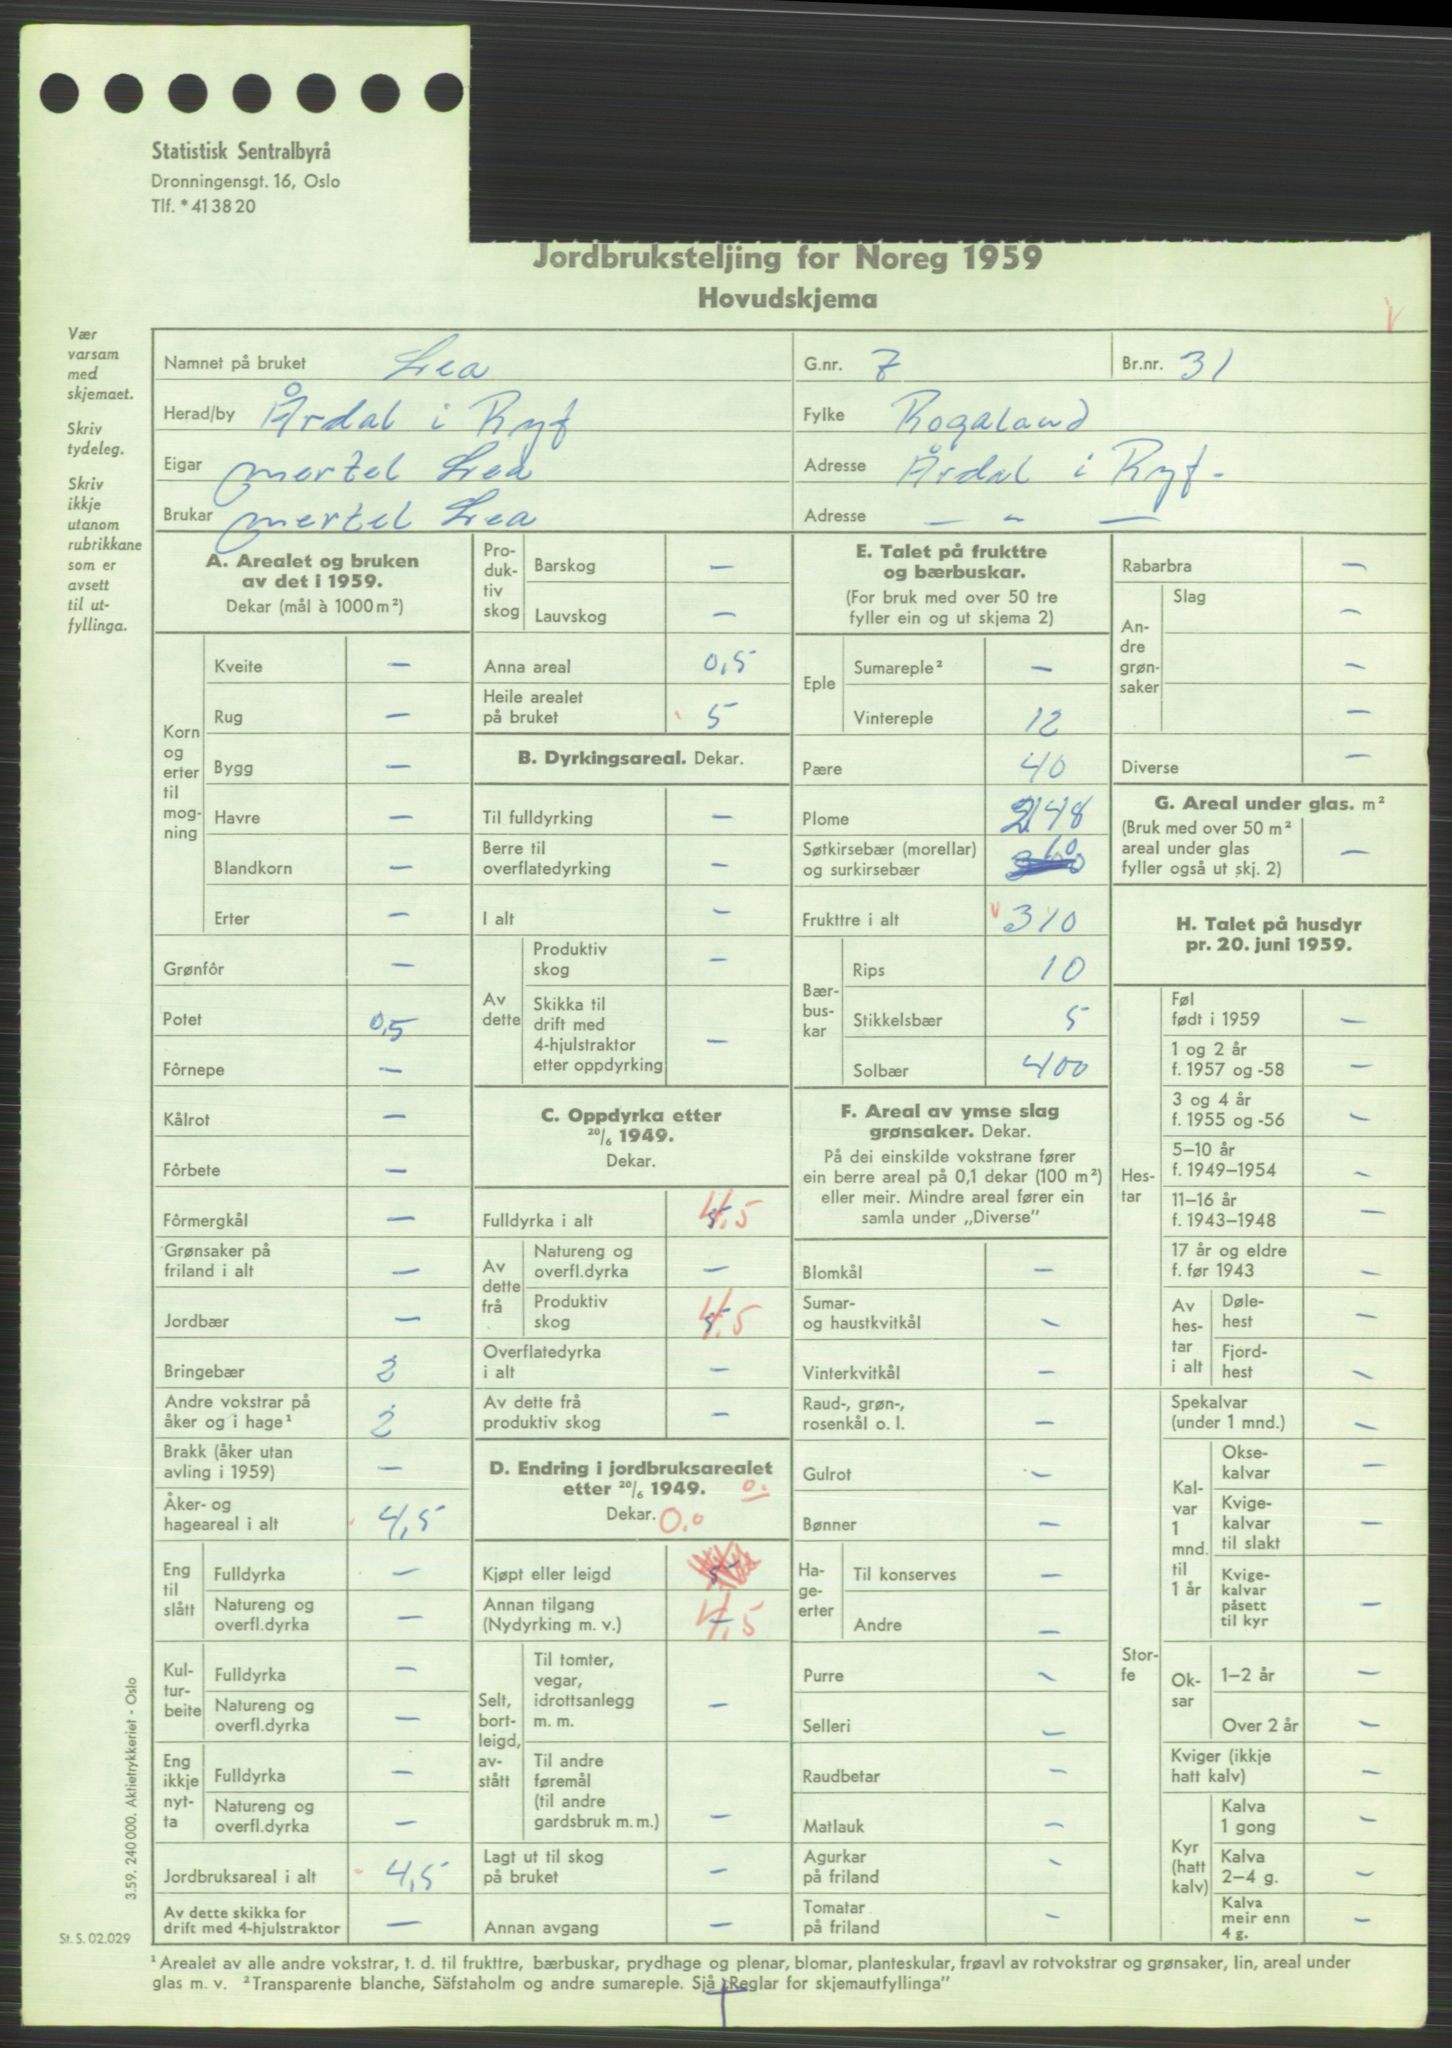 Statistisk Sentralbyrå
Dronningensgt. 16, Oslo
Tlf. * 41 38 20
Jordbruksteljing for Noreg 1959
Hovudskjema
Vær
varsam
med
skjemaet.
Skriv
tydeleg.
Skriv
ikkje
utanom
rubrikkane
som er
avsett
til ut-
fyllinga.
Namnet på bruket Lea G.nr. 7 Br.nr. 31
Herad/by Årdal i Ryf Fylke Rogaland
Eigar mertel Lea Adresse Årdal i Ryf.
Brukar mertel Lea Adresse — " —
A. Arealet og bruken
av det i 1959.
Dekar (mål à 1000 m²)
Korn
og
erter
til
mog-
ning
Kveite —
Rug —
Bygg —
Havre —
Blandkorn —
Erter —
Grønfôr —
Potet 0,5
Fôrnepe —
Kålrot —
Fôrbete —
Fôrmergkål —
Grønsaker på
friland i alt —
Jordbær —
Bringebær 2
Andre vokstrar på
åker og i hage¹ 2
Brakk (åker utan
avling i 1959) —
Åker- og
hageareal i alt 4,5
Eng
til
slått
Fulldyrka —
Natureng og
overfl.dyrka —
Kul-
tur-
beite
Fulldyrka —
Natureng og
overfl.dyrka —
Eng
ikkje
nyt-
ta
Fulldyrka —
Natureng og
overfl.dyrka —
Jordbruksareal i alt 4,5
Av dette skikka for
drift med 4-hjulstraktor —
Pro-
duk-
tiv
skog
Barskog —
Lauvskog —
Anna areal 0,5
Heile arealet
på bruket 5
B. Dyrkingsareal. Dekar.
Til fulldyrking —
Berre til
overflatedyrking —
I alt —
Av
dette
Produktiv
skog —
Skikka til
drift med
4-hjulstraktor
etter oppdyrking —
C. Oppdyrka etter
20/6 1949.
Dekar.
Fulldyrka i alt 4,5
Av
dette
frå
Natureng og
overfl.dyrka —
Produktiv
skog 4,5
Overflatedyrka
i alt —
Av dette frå
produktiv skog —
D. Endring i jordbruksarealet
etter 20/6 1949. 0.
Dekar. 0.0
Kjøpt eller leigd 5
Annan tilgang
(Nydyrking m. v.) 4,5
Selt,
bort-
leigd,
av-
stått
Til tomter,
vegar,
idrottsanlegg
m. m. —
Til andre
føremål
(til andre
gardsbruk m. m.) —
Lagt ut til skog
på bruket —
Annan avgang —
E. Talet på frukttre
og bærbuskar.
(For bruk med over 50 tre
fyller ein og ut skjema 2)
Eple
Sumareple² —
Vintereple 12
Pære 40
Plome 148
Søtkirsebær (morellar)
og surkirsebær 60
Frukttre i alt v 310
Bær-
bus-
kar
Rips 10
Stikkelsbær 5
Solbær 400
F. Areal av ymse slag
grønsaker. Dekar.
På dei einskilde vokstrane fører
ein berre areal på 0,1 dekar (100 m²)
eller meir. Mindre areal fører ein
samla under „Diverse”
Blomkål —
Sumar-
og haustkvitkål —
Vinterkvitkål —
Raud-, grøn-,
rosenkål o. l. —
Gulrot —
Bønner —
Ha-
ge-
erter
Til konserves —
Andre —
Purre —
Selleri —
Raudbetar —
Matlauk —
Agurkar
på friland —
Tomatar
på friland —
Rabarbra —
An-
dre
grøn-
saker
Slag
—
—
—
Diverse —
G. Areal under glas. m²
(Bruk med over 50 m²
areal under glas
fyller også ut skj. 2) —
H. Talet på husdyr
pr. 20. juni 1959.
Hes-
tar
Føl
født i 1959 —
1 og 2 år
f. 1957 og -58 —
3 og 4 år
f. 1955 og -56 —
5–10 år
f. 1949–1954 —
11–16 år
f. 1943–1948 —
17 år og eldre
f. før 1943 —
Av
hes-
tar
i alt
Døle-
hest —
Fjord-
hest —
Stor-
fe
Spekalvar
(under 1 mnd.) —
Kal-
var
1
mnd.
til
1 år
Okse-
kalvar —
Kvige-
kalvar
til slakt —
Kvige-
kalvar
påsett
til kyr —
Ok-
sar
1–2 år —
Over 2 år —
Kviger (ikkje
hatt kalv) —
Kyr
(hatt
kalv)
Kalva
1 gong —
Kalva
2–4 g. —
Kalva
meir enn
4 g. —
3.59. 240 000. Aktietrykkeriet - Oslo
St. S. 02.029
¹ Arealet av alle andre vokstrar, t. d. til frukttre, bærbuskar, prydhage og plenar, blomar, planteskular, frøavl av rotvokstrar og grønsaker, lin, areal under
glas m. v. ² Transparente blanche, Säfstaholm og andre sumareple. Sjå „Reglar for skjemautfyllinga”